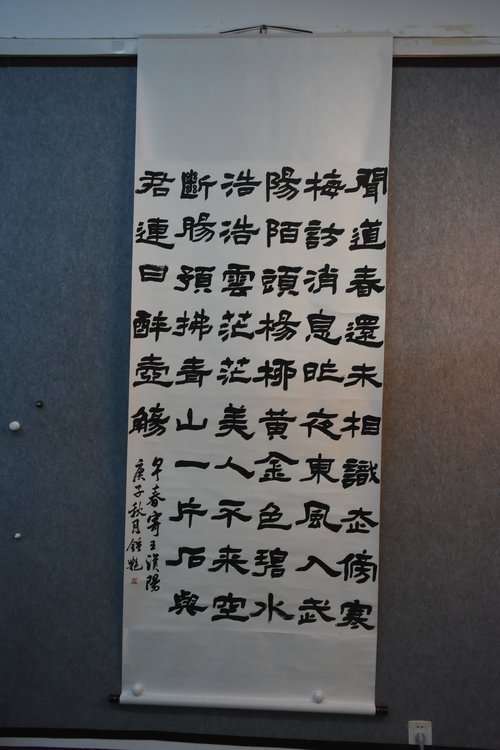 聞道春還未相識走傍寒
梅訪消息昨夜東風入武
陽陌頭楊柳黃金色碧水
浩浩雲茫茫美人不来空
斷腸預拂青山一片石與
君連日醉壺觴
早春寄王漢陽
庚子秋月